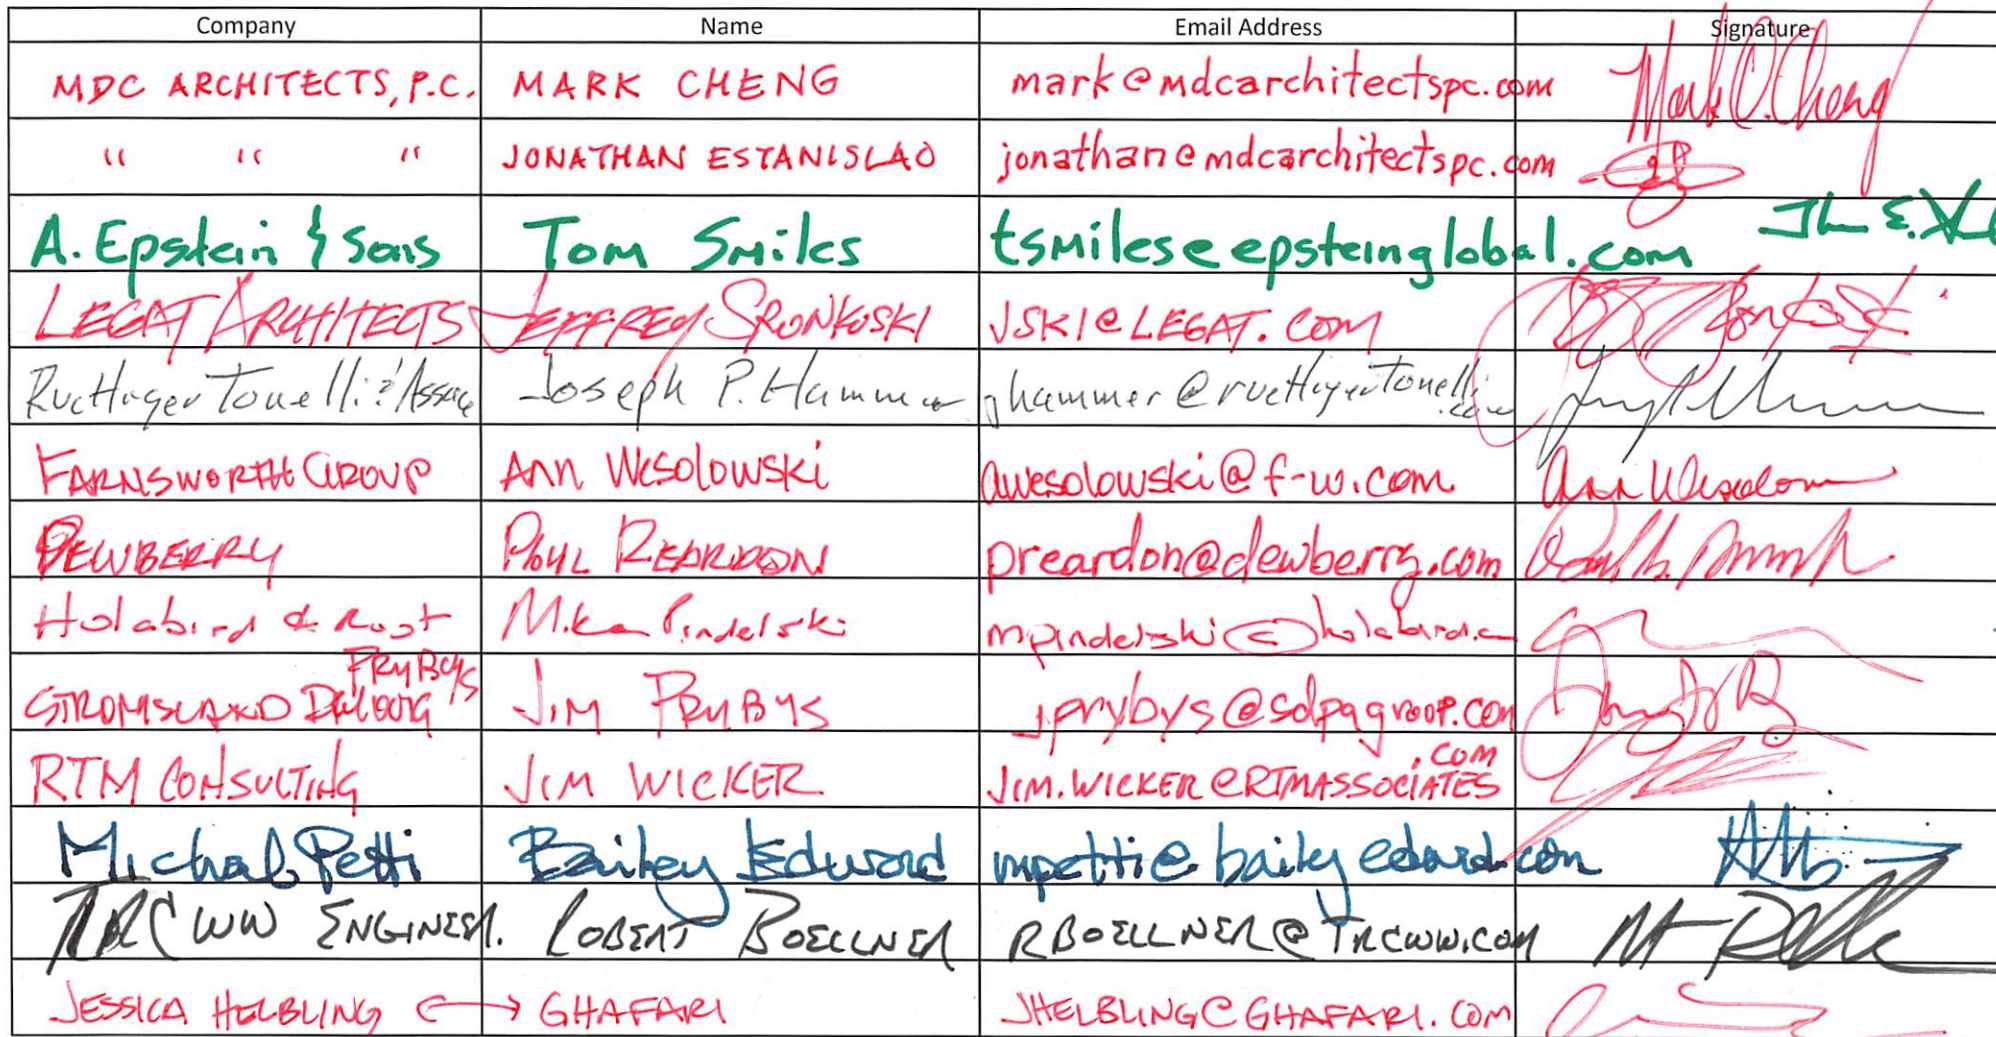 Company Name Email Address Signature
MDC ARCHITECTS, P.C. MARK CHENG mark@mdcarchitectspc.com Mark O. Cheng
" " " JONATHAN ESTANISLAO jonathan@mdcarchitectspc.com
A. Epstein & Sons Tom Smiles tsmiles@epsteinglobal.com
LEGAT ARCHITECTS JEFFREY SRONKOSKI JSKI@LEGAT.COM
Ruettiger Tonelli & Assoc Joseph P. Hammer jhammer@ruettigertonelli.com
FARNSWORTH GROUP ANN WESOLOWSKI awesolowski@f-w.com Ann Wesolow
DEWBERRY PAUL REARDON preardon@dewberry.com
Holabird & Root Mike Pindelski mpindelski@holabird.c
PRYBYS
STROMSLAND DEYOUNG JIM PRYBYS jprybys@sdpqgroup.com
.com
RTM CONSULTING JIM WICKER JIM.WICKER@RTMASSOCIATES
Michal Petti Bailey Edward mpetti@bailyedward.com
TRC WW ENGINEER. ROBERT BOELLNER RBOELLNER@TRCWW.COM
JESSICA HELBLING ↔ GHAFARI JHELBLING@GHAFARI.COM